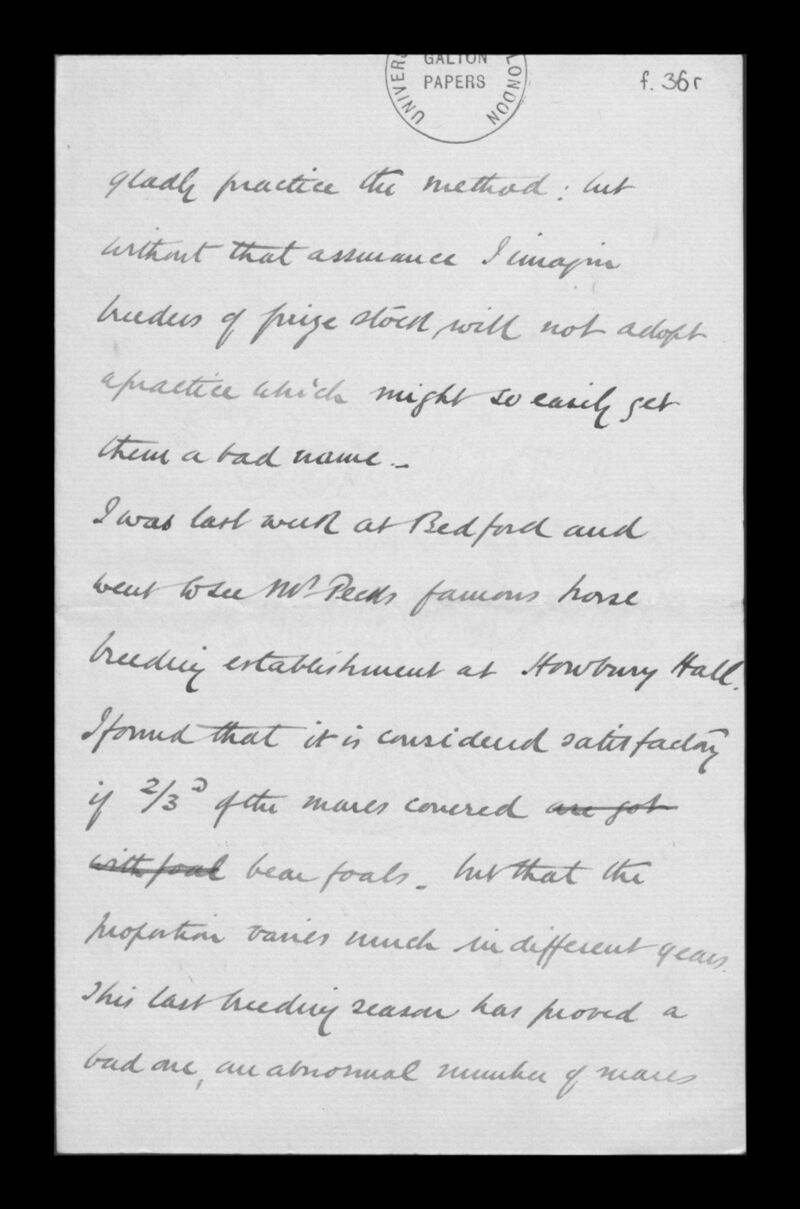 UNIVERS
GALTON
PAPERS
LONDON
f. 36r
gladly practice the method: but
without that assurance I imagin
breeders of prize stock will not adopt
a practice which might so easily get
them a bad name -
I was last week at Bedford and
went to see Mr Pecks famous horse
breeding establishment at Howbury Hall.
I found that it is considered satisfactory
if 2/3d of the mares covered are got
with foal bear foals - but that the
proportion varies much in different years.
This last breeding season has proved a
bad one, an abnormal number of mares